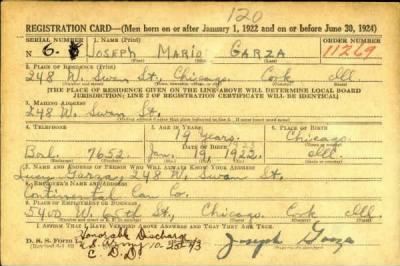 120
REGISTRATION CARD—(Men born on or after January 1, 1922 and on or before June 30, 1924)
SERIAL NUMBER 1. NAME (Print) ORDER NUMBER
N 6 JOSEPH MARIO GARZA 11269
(First) (Middle) (Last)
2. PLACE OF RESIDENCE (Print)
248 W. Swan St., Chicago, Cook Ill.
[THE PLACE OF RESIDENCE GIVEN ON THE LINE ABOVE WILL DETERMINE LOCAL BOARD
JURISDICTION; LINE 2 OF REGISTRATION CERTIFICATE WILL BE IDENTICAL]
3. MAILING ADDRESS
248 W. Swan St.
4. TELEPHONE 5. AGE IN YEARS 6. PLACE OF BIRTH
19 Years. Chicago
Boul. 7652 Jan. 19, 1922 Ill.
7. NAME AND ADDRESS OF PERSON WHO WILL ALWAYS KNOW YOUR ADDRESS
Garza, 248 W. Swan St.
8. EMPLOYER'S NAME AND ADDRESS
Continental Can Co.
9. PLACE OF EMPLOYMENT OR BUSINESS
5400 W. 65th St., Chicago, Cook Ill.
I AFFIRM THAT I HAVE VERIFIED ABOVE ANSWERS AND THAT THEY ARE TRUE.
Honorable Discharge
D. S. S. Form U.S. Army 10-25-43 Joseph Garza
C.D.D.